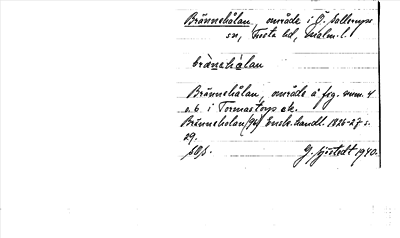 Brännehålan, område i Ö. Sallerups
sn, Frosta hd, Malm. l.
brännehålan
Brännehålan, område å fig. num. 4
o. 6. i Tormastorps ek.
Brännehålan (94) Ensk. handl. 1826-27 s.
29.
G. Sjöstedt 1940.